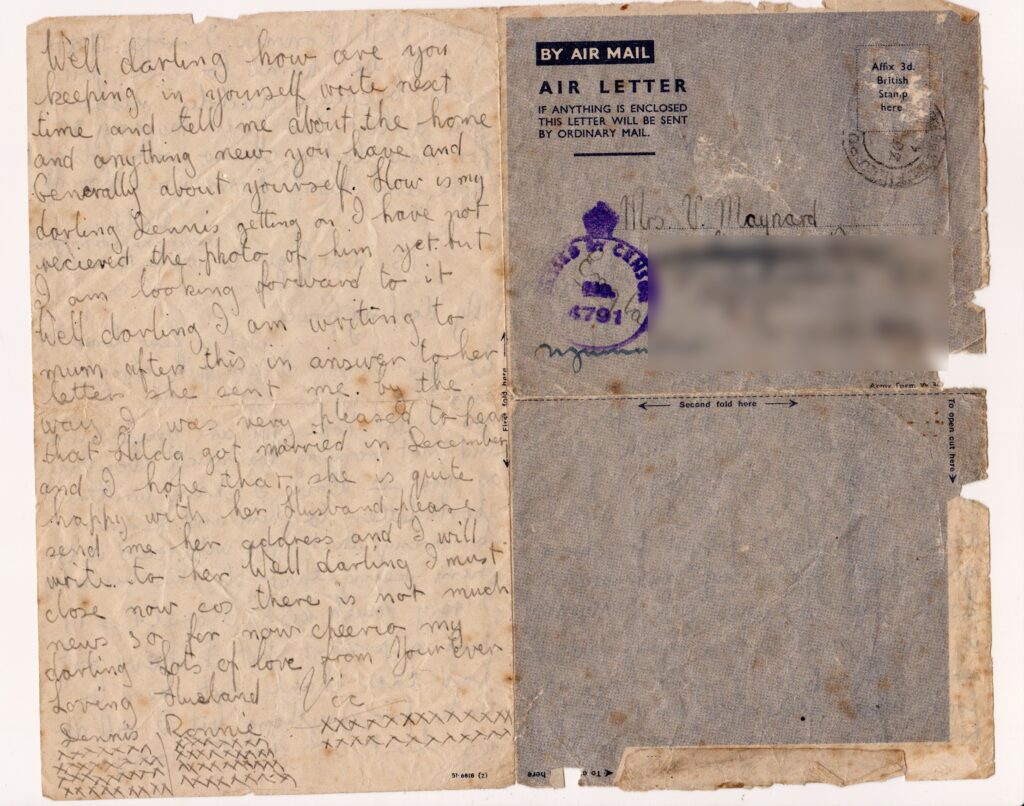 Well darling how are you
keeping in yourself write next
time and tell me about the home
and anything new you have and
Generally about yourself. How is my
darling Dennis getting on I have not
recieved the photo of him yet but
I am looking forward to it
Well darling I am writing to
mum after this in answer to her
letter she sent me. by the
way I was very pleased to hear
that Hilda got married in December
and I hope that she is quite
happy with her Husband please
send me her address and I will
write to her Well darling I must
close now cos there is not much
news so for now cheerio my
darling Lots of love from Your Ever
Loving Husband Vic
Dennis Ronnie
xxxxxxxxxxxxx
xxxxxxxxxxxxx
51-6818 (2)
First fold here
BY AIR MAIL
AIR LETTER
IF ANYTHING IS ENCLOSED
THIS LETTER WILL BE SENT
BY ORDINARY MAIL.
Affix 3d.
British
Stamp
here
Mrs. V. Maynard
CENSOR
4791
Army Form
Second fold here
To open cut here
here
To